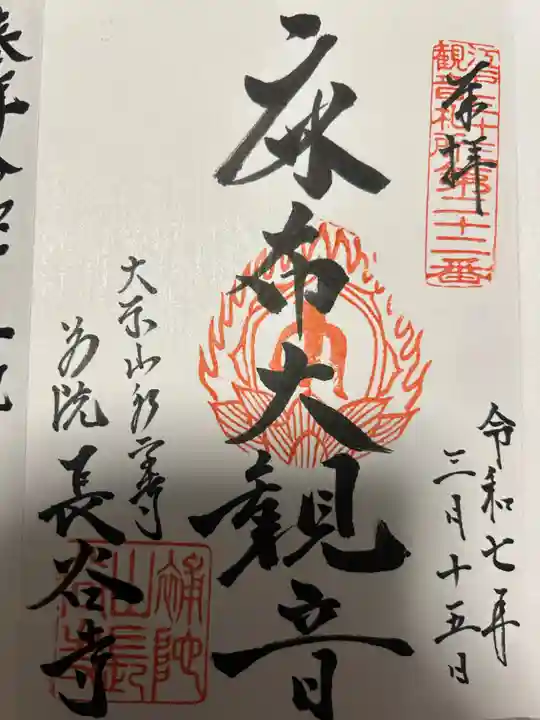 奉拝
江戸三十三
観音札所第二十二番
令和七年
三月十五日
麻布大観音
大本山永平寺
別院 長谷寺
補陀
山長
谷寺